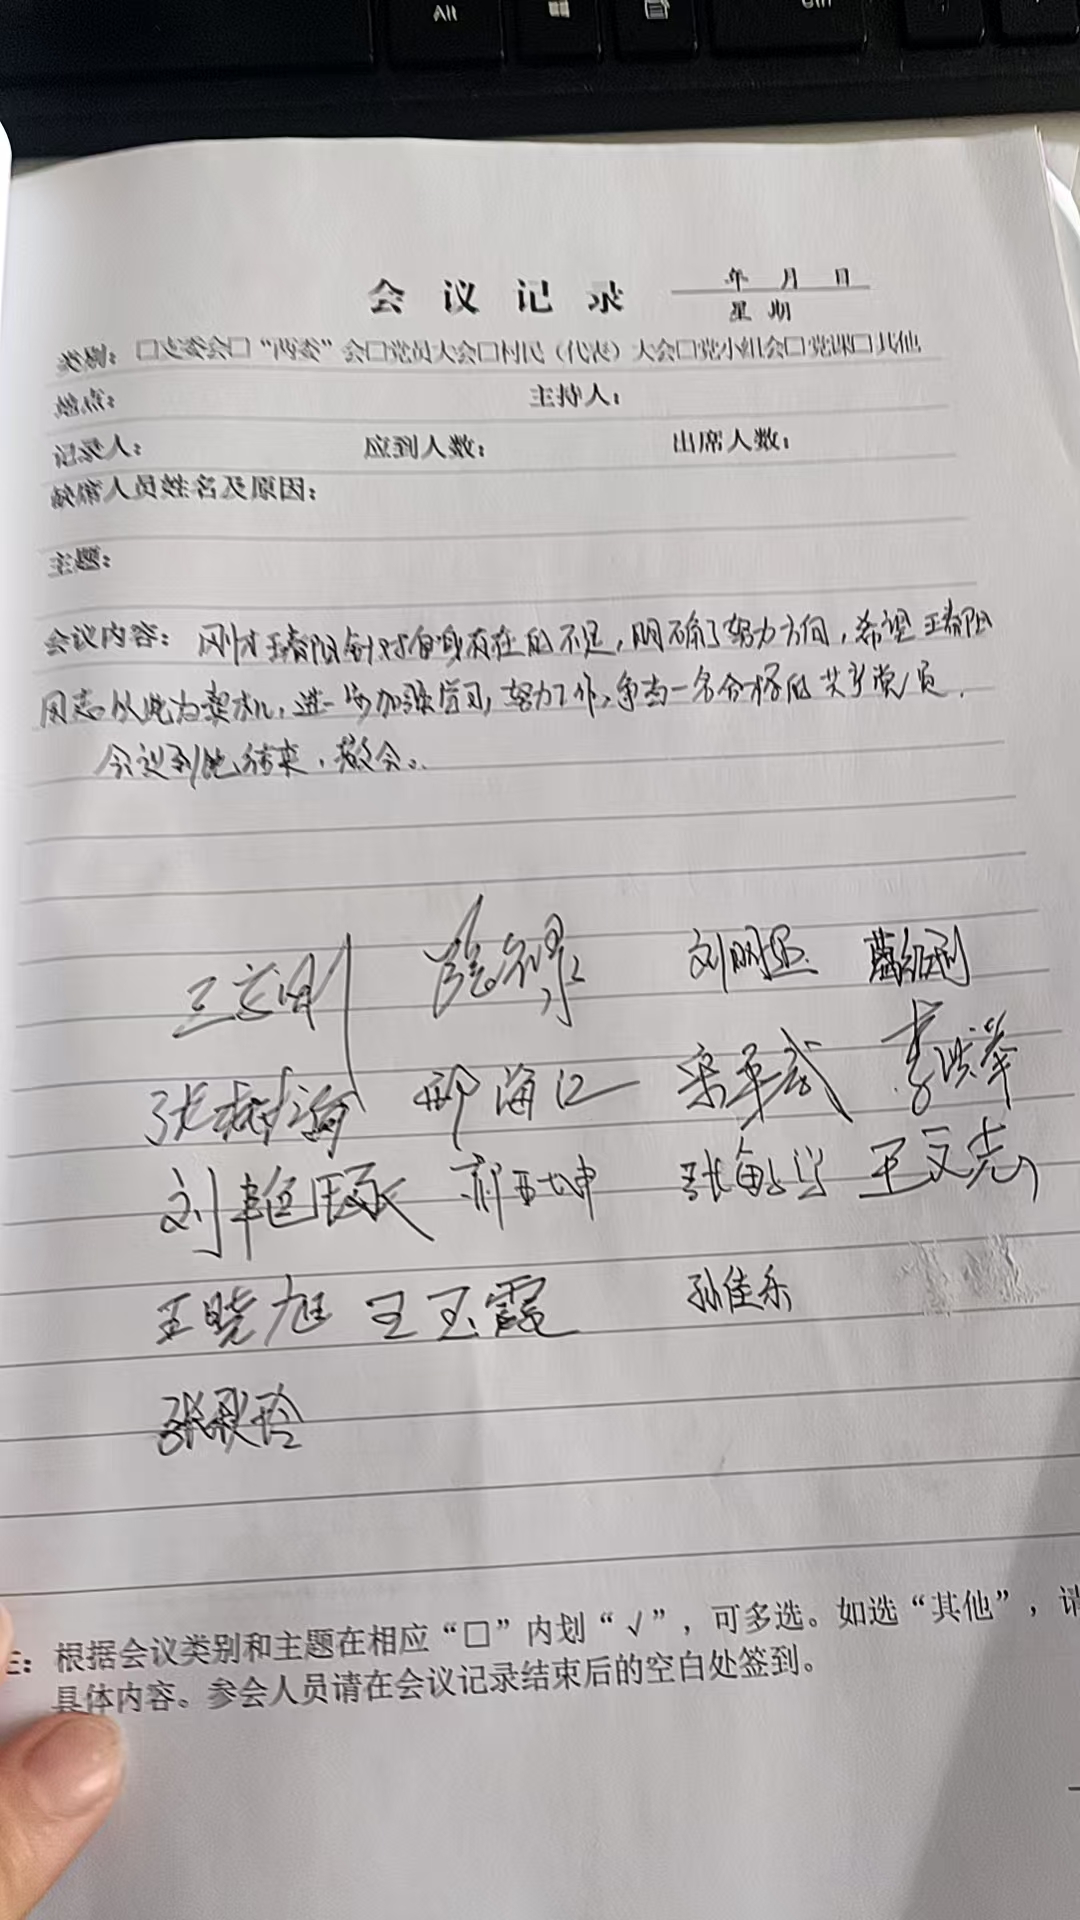 Alt
会议记录 年 月 日
星期
类别：□支委会□“两委”会□党员大会□村民（代表）大会□党小组会□党课□其他
地点： 主持人：
记录人： 应到人数： 出席人数：
缺席人员姓名及原因：
主题：
会议内容：刚才王春阳针对自身存在的不足，明确了努力方向，希望王春阳
同志以此为契机，进一步加强学习，努力工作，争当一名合格的共产党员．
会议到此结束，散会。
刘明
张树海 邢海江 宋革武 李洪举
刘艳 郭亚坤 张敏 王文志
王晓旭 王玉霞 孙佳乐
张秋玲
注：根据会议类别和主题在相应“□”内划“√”，可多选。如选“其他”，请
具体内容。参会人员请在会议记录结束后的空白处签到。